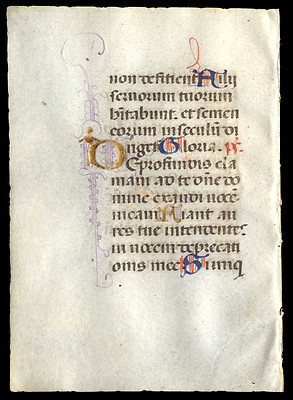 non deficient Filij
seruorum tuorum
hītabunt. et semen
eorum in seculū di
ꝛigetᷣ Gloria. ps.
De profundis cla
maui ad te dn̄e do
mine exaudi uocē
meam Fiant au
res tue intendentes
in uocem deprecati
onis mee Si iniq